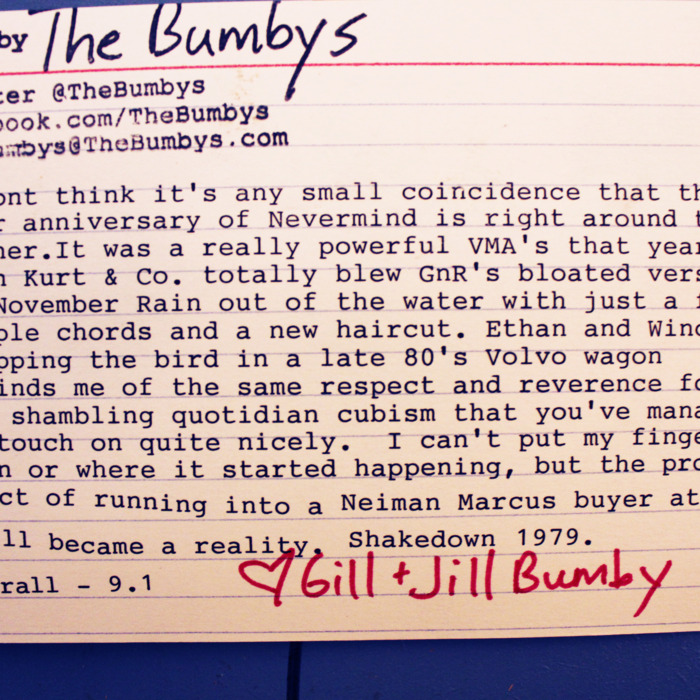 by The Bumbys
ter @TheBumbys
ook.com/TheBumbys
mbys@TheBumbys.com
ont think it's any small coincidence that th
r anniversary of Nevermind is right around t
ner.It was a really powerful VMA's that year
n Kurt & Co. totally blew GnR's bloated vers
November Rain out of the water with just a
ple chords and a new haircut. Ethan and Wino
pping the bird in a late 80's Volvo wagon
inds me of the same respect and reverence fo
shambling quotidian cubism that you've mana
touch on quite nicely. I can't put my finge
n or where it started happening, but the pro
ct of running into a Neiman Marcus buyer at
ll became a reality. Shakedown 1979.
rall - 9.1
♡ Gill + Jill Bumby